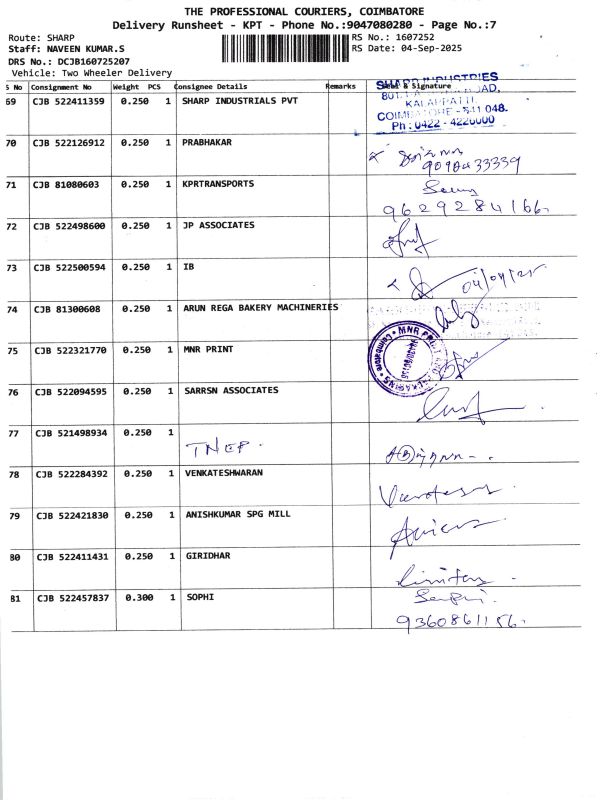 THE PROFESSIONAL COURIERS, COIMBATORE
Delivery Runsheet - KPT - Phone No.:9047080280 - Page No.:7
Route: SHARP RS No.: 1607252
Staff: NAVEEN KUMAR.S RS Date: 04-Sep-2025
DRS No.: DCJB160725207
Vehicle: Two Wheeler Delivery
S No Consignment No Weight PCS Consignee Details Remarks & Signature
SHARP INDUSTRIES
69 CJB 522411359 0.250 1 SHARP INDUSTRIALS PVT
KALAPPATTI,
COIMBATORE - 641 048.
Ph : 0422 - 4226600
70 CJB 522126912 0.250 1 PRABHAKAR
71 CJB 81080603 0.250 1 KPRTRANSPORTS
9629284166
72 CJB 522498600 0.250 1 JP ASSOCIATES
73 CJB 522500594 0.250 1 IB
04/09/25
74 CJB 81300608 0.250 1 ARUN REGA BAKERY MACHINERIES
75 CJB 522321770 0.250 1 MNR PRINT
76 CJB 522094595 0.250 1 SARRSN ASSOCIATES
77 CJB 521498934 0.250 1
TNEP.
78 CJB 522284392 0.250 1 VENKATESHWARAN
79 CJB 522421830 0.250 1 ANISHKUMAR SPG MILL
80 CJB 522411431 0.250 1 GIRIDHAR
81 CJB 522457837 0.300 1 SOPHI
9360861156.